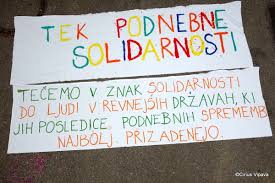 TEK PODNEBNE
SOLIDARNOSTI
TEČEMO V ZNAK SOLIDARNOSTI
DO LJUDI V REVNEJŠIH DRŽAVAH, KI
JIH POSLEDICE PODNEBNIH SPREMEMB
NAJBOLJ PRIZADENEJO.
©Cirius Vipava